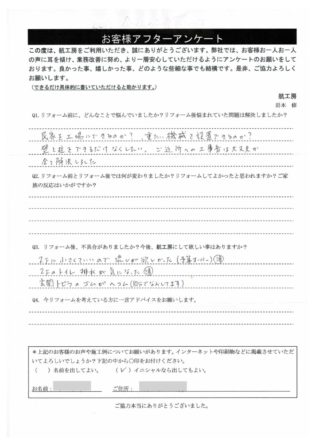 お客様アフターアンケート
この度は、紙工房をご利用いただき、誠にありがとうございます。弊社では、お客様お一人お一人
の声に耳を傾け、業務改善に努め、より一層安心していただけるようにアンケートのお願いをして
おります。良かった事、嬉しかった事、どのような些細な事でも結構です。是非、ご協力よろしく
お願いします。
(できるだけ具体的に書いていただけると助かります。)
紙工房
Q1. リフォーム前に、どんなことで悩んでいましたか?リフォーム後悩まれていた問題は解決しましたか?
民家を工場にできるのか? 重たい機械を設置できるのか?
ご近所への工事音は大丈夫か
全て解決しました
Q2. リフォーム前とリフォーム後では何が変わりましたか?リフォームしてよかったと思われますか?ご家
族の反応はいかがですか?
Q3. リフォーム後、不具合がありましたか?今後、紙工房にして欲しい事はありますか?
2Fに小さくていいので流しが欲しかった
2Fのトイレ排水が気になった
玄関トビラのゴムがヘコム
Q4. 今リフォームを考えている方に一言アドバイスをお願いします。
*上記のお客様のお声や施工例についてお願いがあります。インターネットや印刷物などに掲載させていただ
いてよろしいでしょうか?下記の中から○印をお付けください。
( ) 名前を出してよい。 (✓) イニシャルなら出してもよい。
お名前: ご住所:
ご協力本当にありがとうございました。